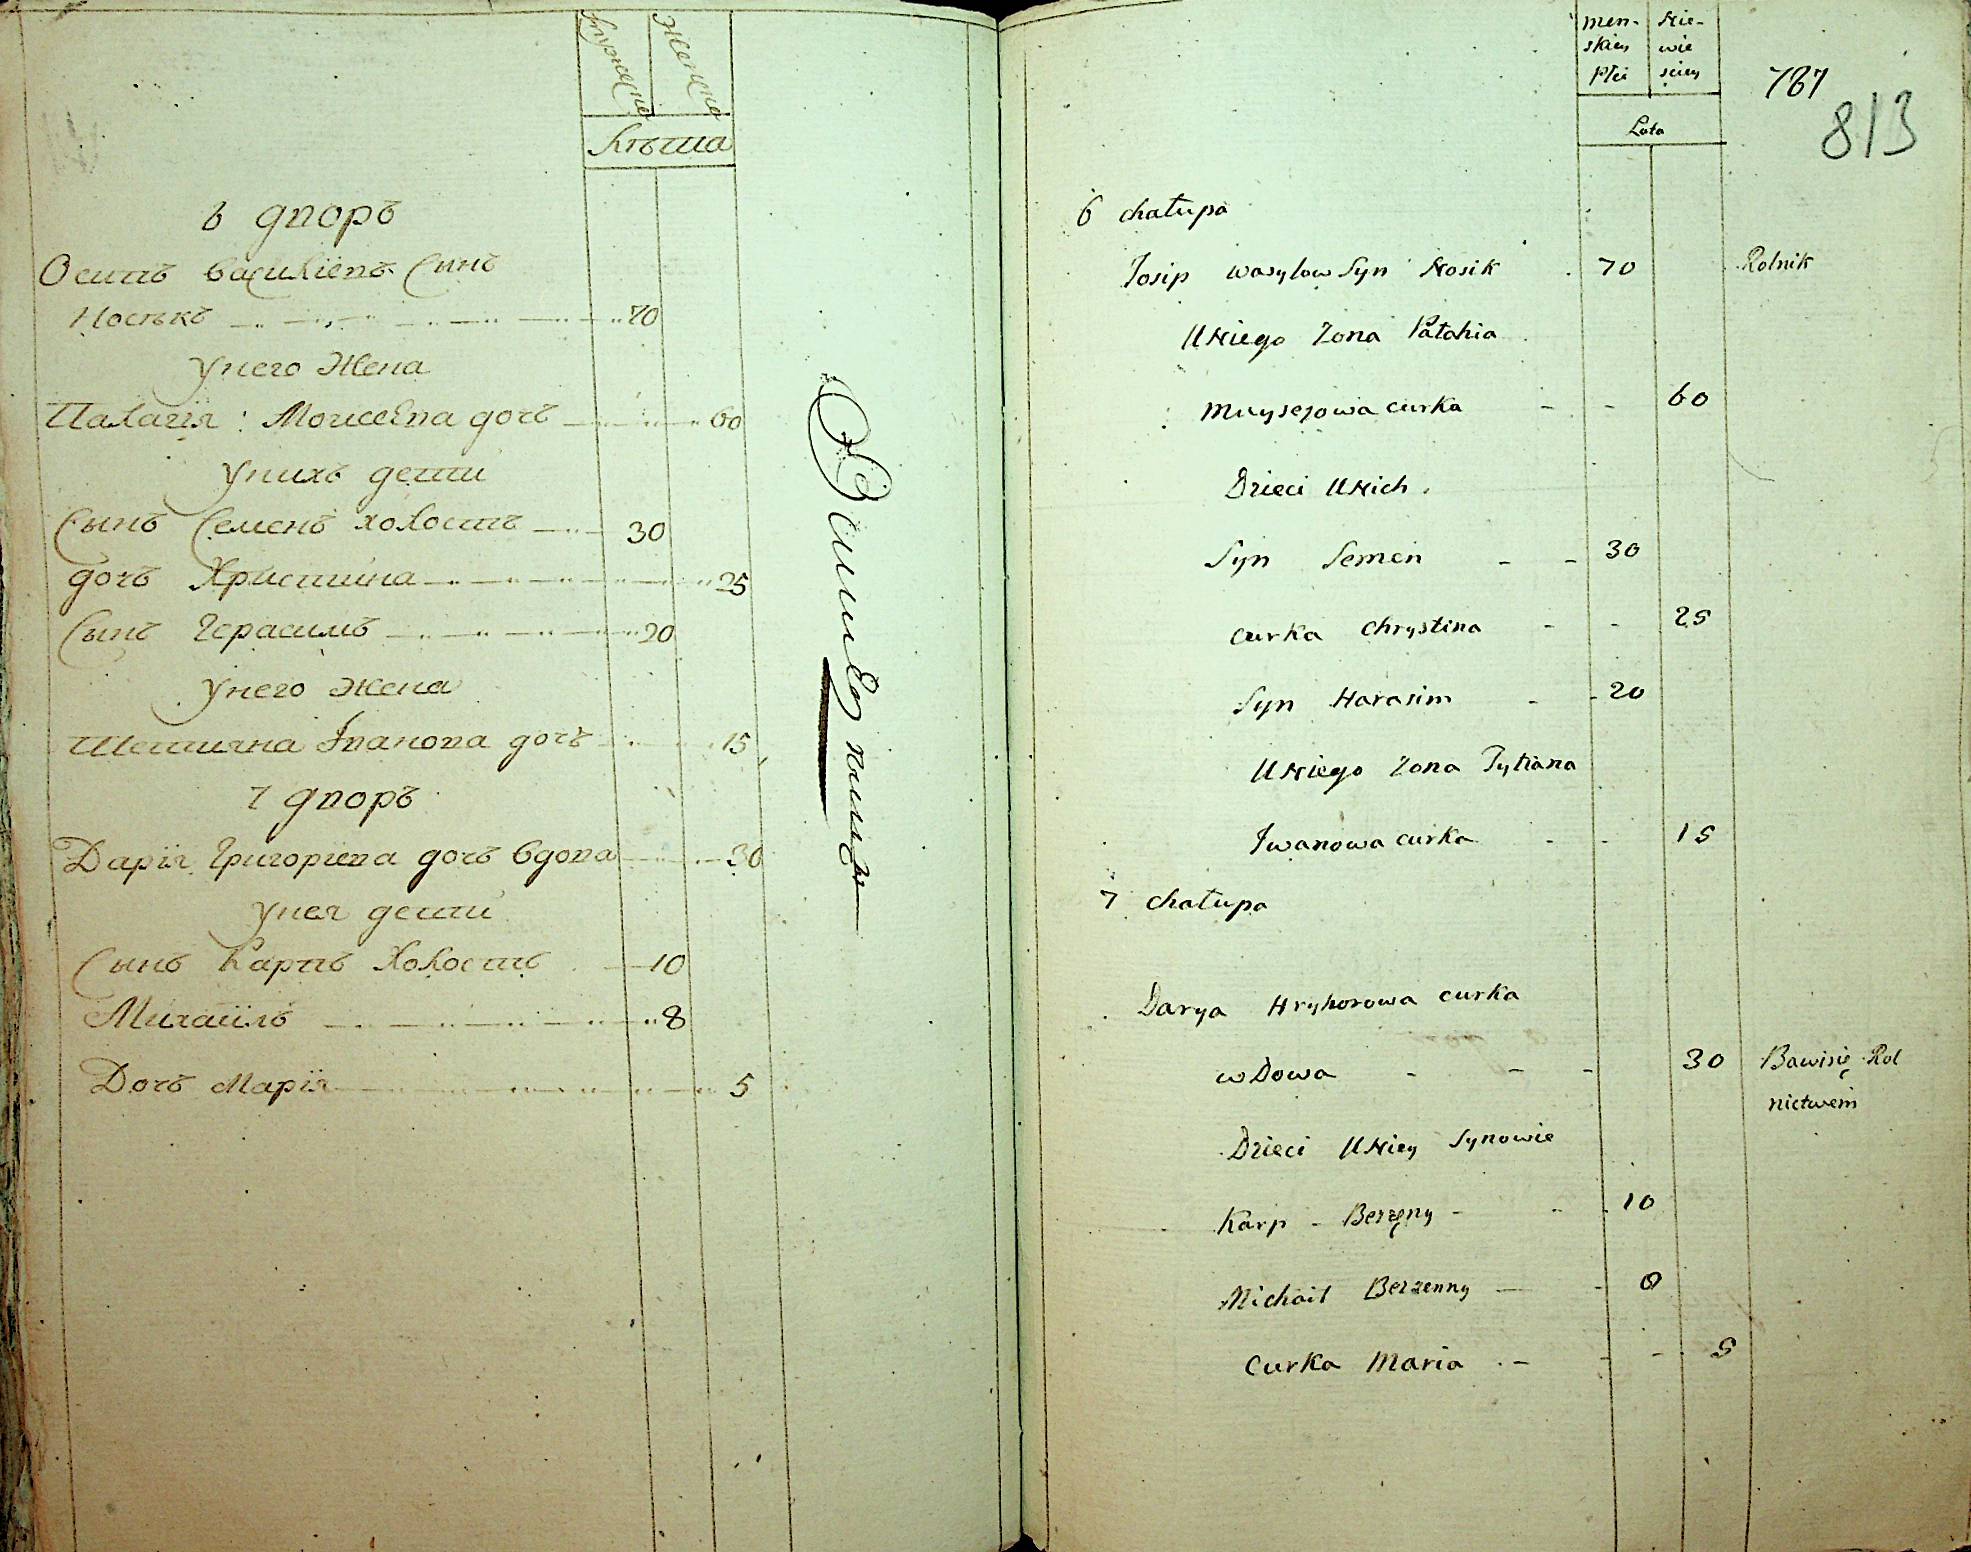 Мужеска
Женска
Лѣта
6 дворъ
Осипъ Василіевъ Сынъ
Носикъ 70
Унего Жена
Палагія: Моисеева дочъ 60
Унихъ дети
Сынъ Семенъ холостъ 30
дочъ Христина 25
Сынъ Герасимъ 20
Унего жена
Тетияна Іванова дочъ 15
7 дворъ
Дарія Григориева дочъ вдова 30
Унея дети
Сынъ Карпъ Холостъ 10
Михайлъ 8
Дочъ Марія 5
men- Nie-
skiey wie
Płci sciey
Lata
787
813
6 chałupa
Josip wasylow Syn Nosik 70 Rolnik
U Niego Zona Pałahia
muysejowa curka 60
Dzieci U Nich.
Syn Semen 30
curka Chrystina 25
Syn Harasim 20
U Niego Zona Tytiana
Iwanowa curka 15
7 chałupa
Darya Hryhorowa curka
wDowa 30 Bawisię Rol
nictwem
Dzieci U Niey Synowie
Karp - Bezżęny - 10
Michaił Bezzenny 8
Curka Maria 5